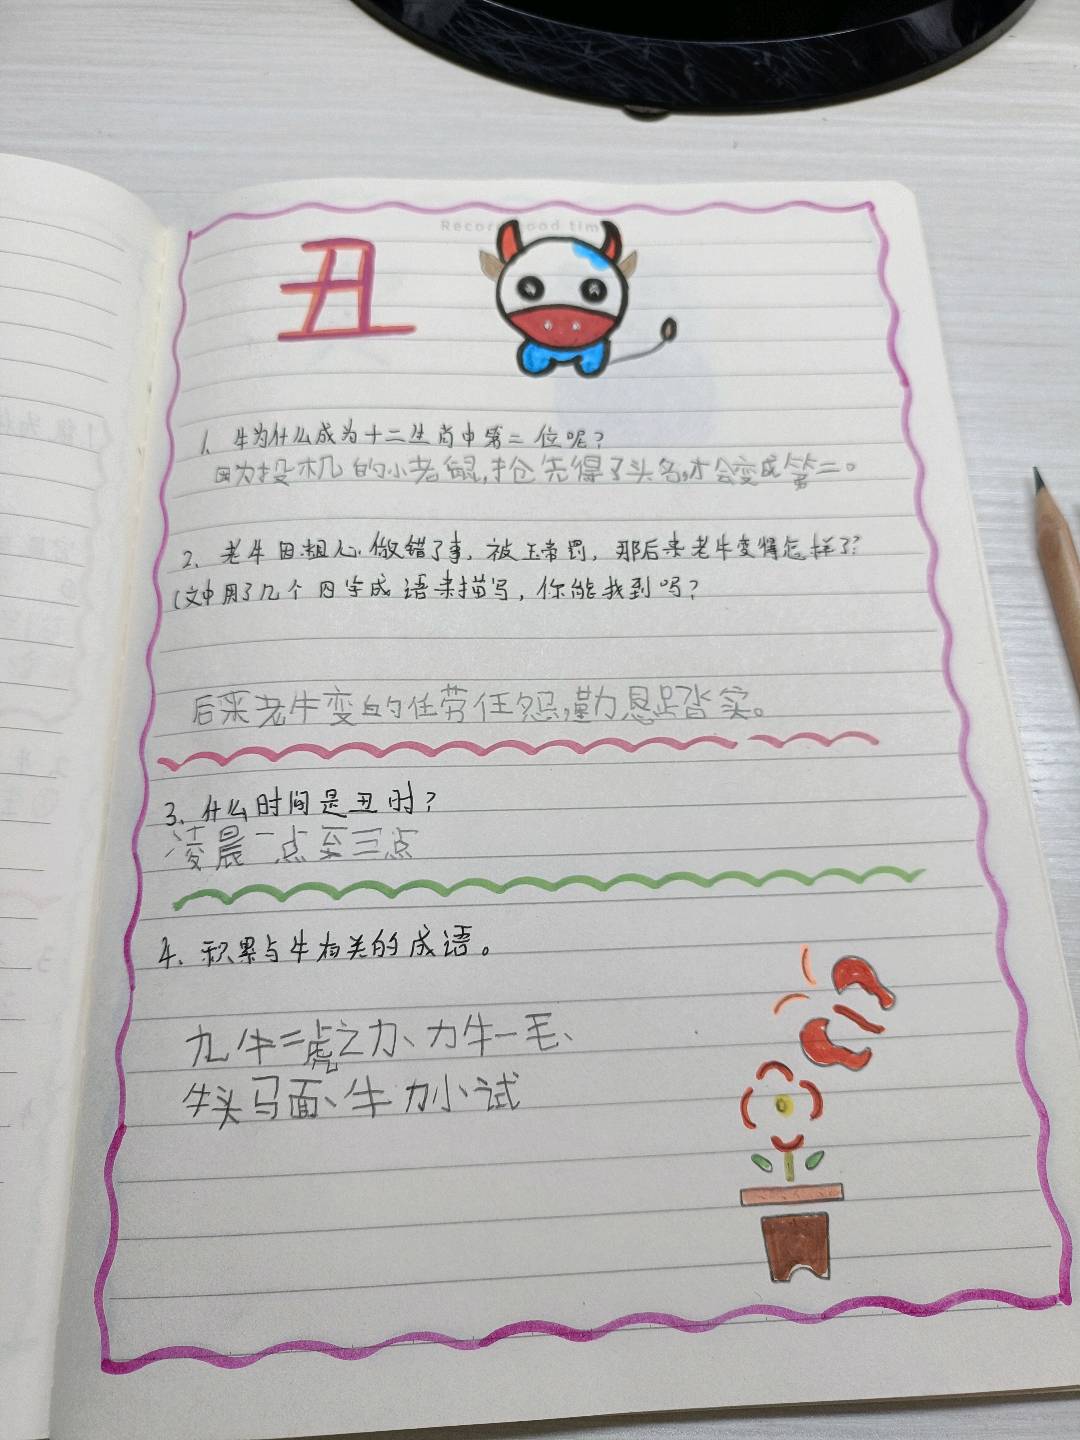 Record good tim
丑
1、牛为什么成为十二生肖中第二位呢?
因为投机的小老鼠,抢先得了头名,才会变成第二。
2、老牛因粗心做错了事,被玉帝罚,那后来老牛变得怎样了?
(文中用了几个四字成语来描写,你能找到吗?
后来老牛变的任劳任怨,勤恳踏实。
3、什么时间是丑时?
凌晨一点至三点
4、积累与牛相关的成语。
九牛二虎之力、力牛一毛、
牛头马面、牛力小试